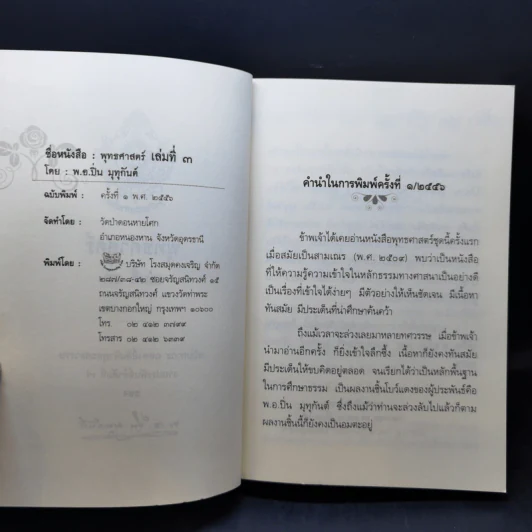 ชื่อหนังสือ : พุทธศาสตร์ เล่มที่ ๓
โดย : พ.อ.ปิ่น มุทุกันต์
ฉบับพิมพ์ : ครั้งที่ ๑ พ.ศ. ๒๕๕๖
จัดทำโดย : วัดป่าดอนหายโศก
อำเภอหนองหาน จังหวัดอุดรธานี
พิมพ์โดย : บริษัท โรงสมุดคงเจริญ จำกัด
๒๘๗/๓๘-๔๒ ซอยจรัญสนิทวงศ์ ๑๕
ถนนจรัญสนิทวงศ์ แขวงวัดท่าพระ
เขตบางกอกใหญ่ กรุงเทพฯ ๑๐๖๐๐
โทร. ๐๒ ๔๑๒ ๓๗๙๙
โทรสาร ๐๒ ๔๑๒ ๖๓๓๙
คำนำในการพิมพ์ครั้งที่ ๑/๒๕๕๖
ข้าพเจ้าได้เคยอ่านหนังสือพุทธศาสตร์ชุดนี้ครั้งแรก
เมื่อสมัยเป็นสามเณร (พ.ศ. ๒๕๐๙) พบว่าเป็นหนังสือ
ที่ให้ความรู้ความเข้าใจในหลักธรรมทางศาสนาเป็นอย่างดี
เป็นเรื่องที่เข้าใจได้ง่ายๆ มีตัวอย่างให้เห็นชัดเจน มีเนื้อหา
ทันสมัย มีประเด็นที่น่าศึกษาค้นคว้า
ถึงแม้เวลาจะล่วงเลยมาหลายทศวรรษ เมื่อข้าพเจ้า
นำมาอ่านอีกครั้ง ก็ยิ่งเข้าใจลึกซึ้ง เนื้อหาก็ยังคงทันสมัย
มีประเด็นให้ขบคิดอยู่ตลอด จนเรียกได้ว่าเป็นหลักพื้นฐาน
ในการศึกษาธรรม เป็นผลงานชิ้นโบว์แดงของผู้ประพันธ์คือ
พ.อ.ปิ่น มุทุกันต์ ซึ่งถึงแม้ว่าท่านจะล่วงลับไปแล้วก็ตาม
ผลงานชิ้นนี้ก็ยังคงเป็นอมตะอยู่